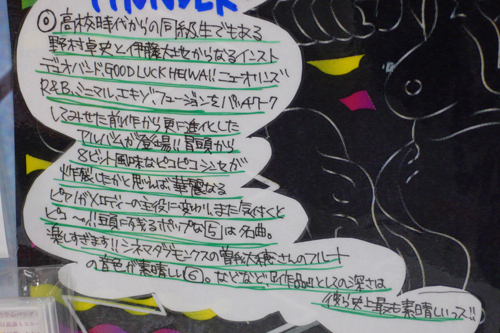 THUNDER
◎高校時代からの同級生でもある
野村卓史と伊藤大地からなるインスト
デュオバンド、GOOD LUCK HEIWA!! ニューオリンズ
R&B、ミニマル、エキゾ、フュージョンをパッチワーク
してみせた前作から更に進化した
アルバムが登場!! 冒頭から
8ビット風味なピコピコシンセが
炸裂したかと思れば華麗なる
ピアノがメロディーの主役に変わり、また気付くと
ピコ〜!! 耳に残るポップな⑤は名曲。
楽しすぎます!! シネマダブモンクスの曽我大穂さんのフルート
の音色が素晴しい⑥。などなど『作品』としての深さは
彼ら史上最も素晴しいっス!!